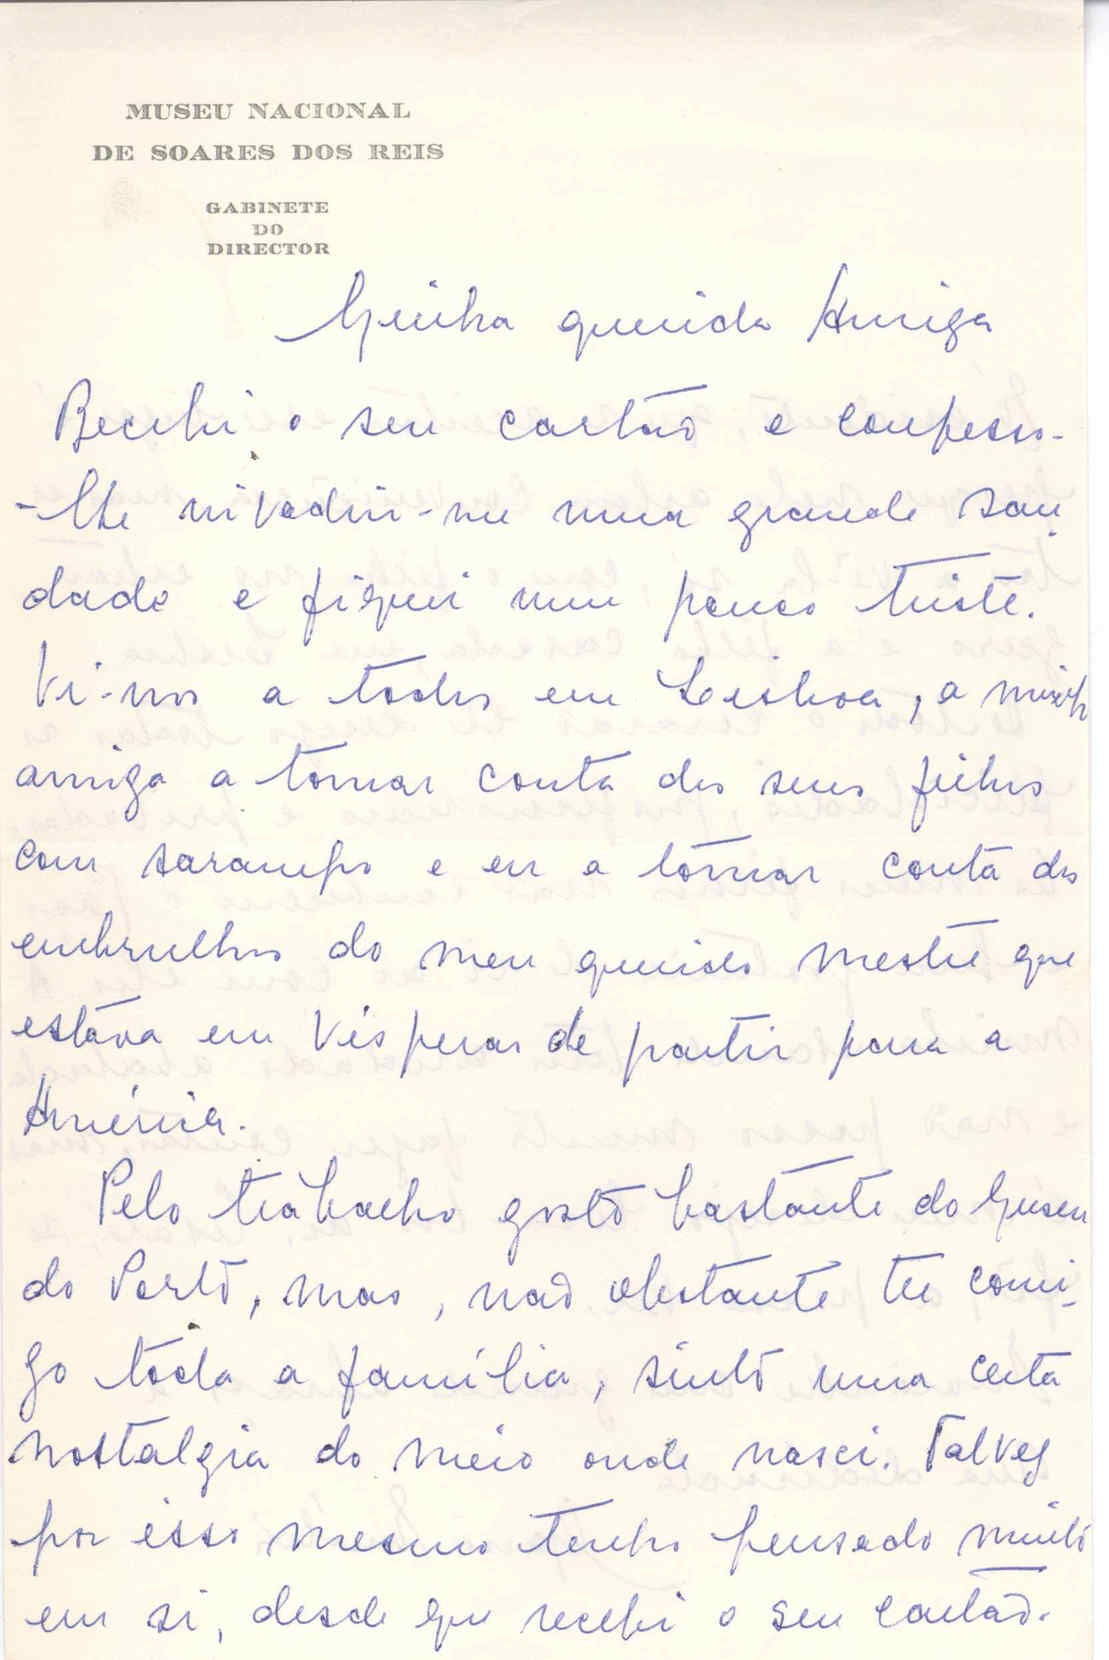 MUSEU NACIONAL
DE SOARES DOS REIS
GABINETE
DO
DIRECTOR
Minha querida Amiga
Recebi o seu cartão e confesso-
-lhe invadiu-me uma grande sau
dade e fiquei um pouco triste.
Vi-nos a todos em Lisboa, a minha
amiga a tomar conta dos seus filhos
com sarampo e eu a tomar conta dos
embrulhos do meu querido mestre que
estava em vésperas de partir para a
América.
Pelo trabalho gosto bastante do Museu
do Porto, mas, não obstante ter comi-
go toda a família, sinto uma certa
nostalgia do meio onde nasci. Talvez
por isso mesmo tenho pensado muito
em si, desde que recebi o seu cartão.